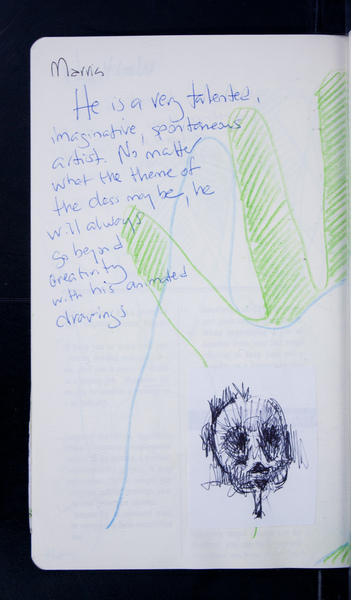 Marvin
He is a very talented,
imaginative, spontaneous
artist. No matter
what the theme of
the class may be, he
will always
go beyond
creativity
with his animated
drawings